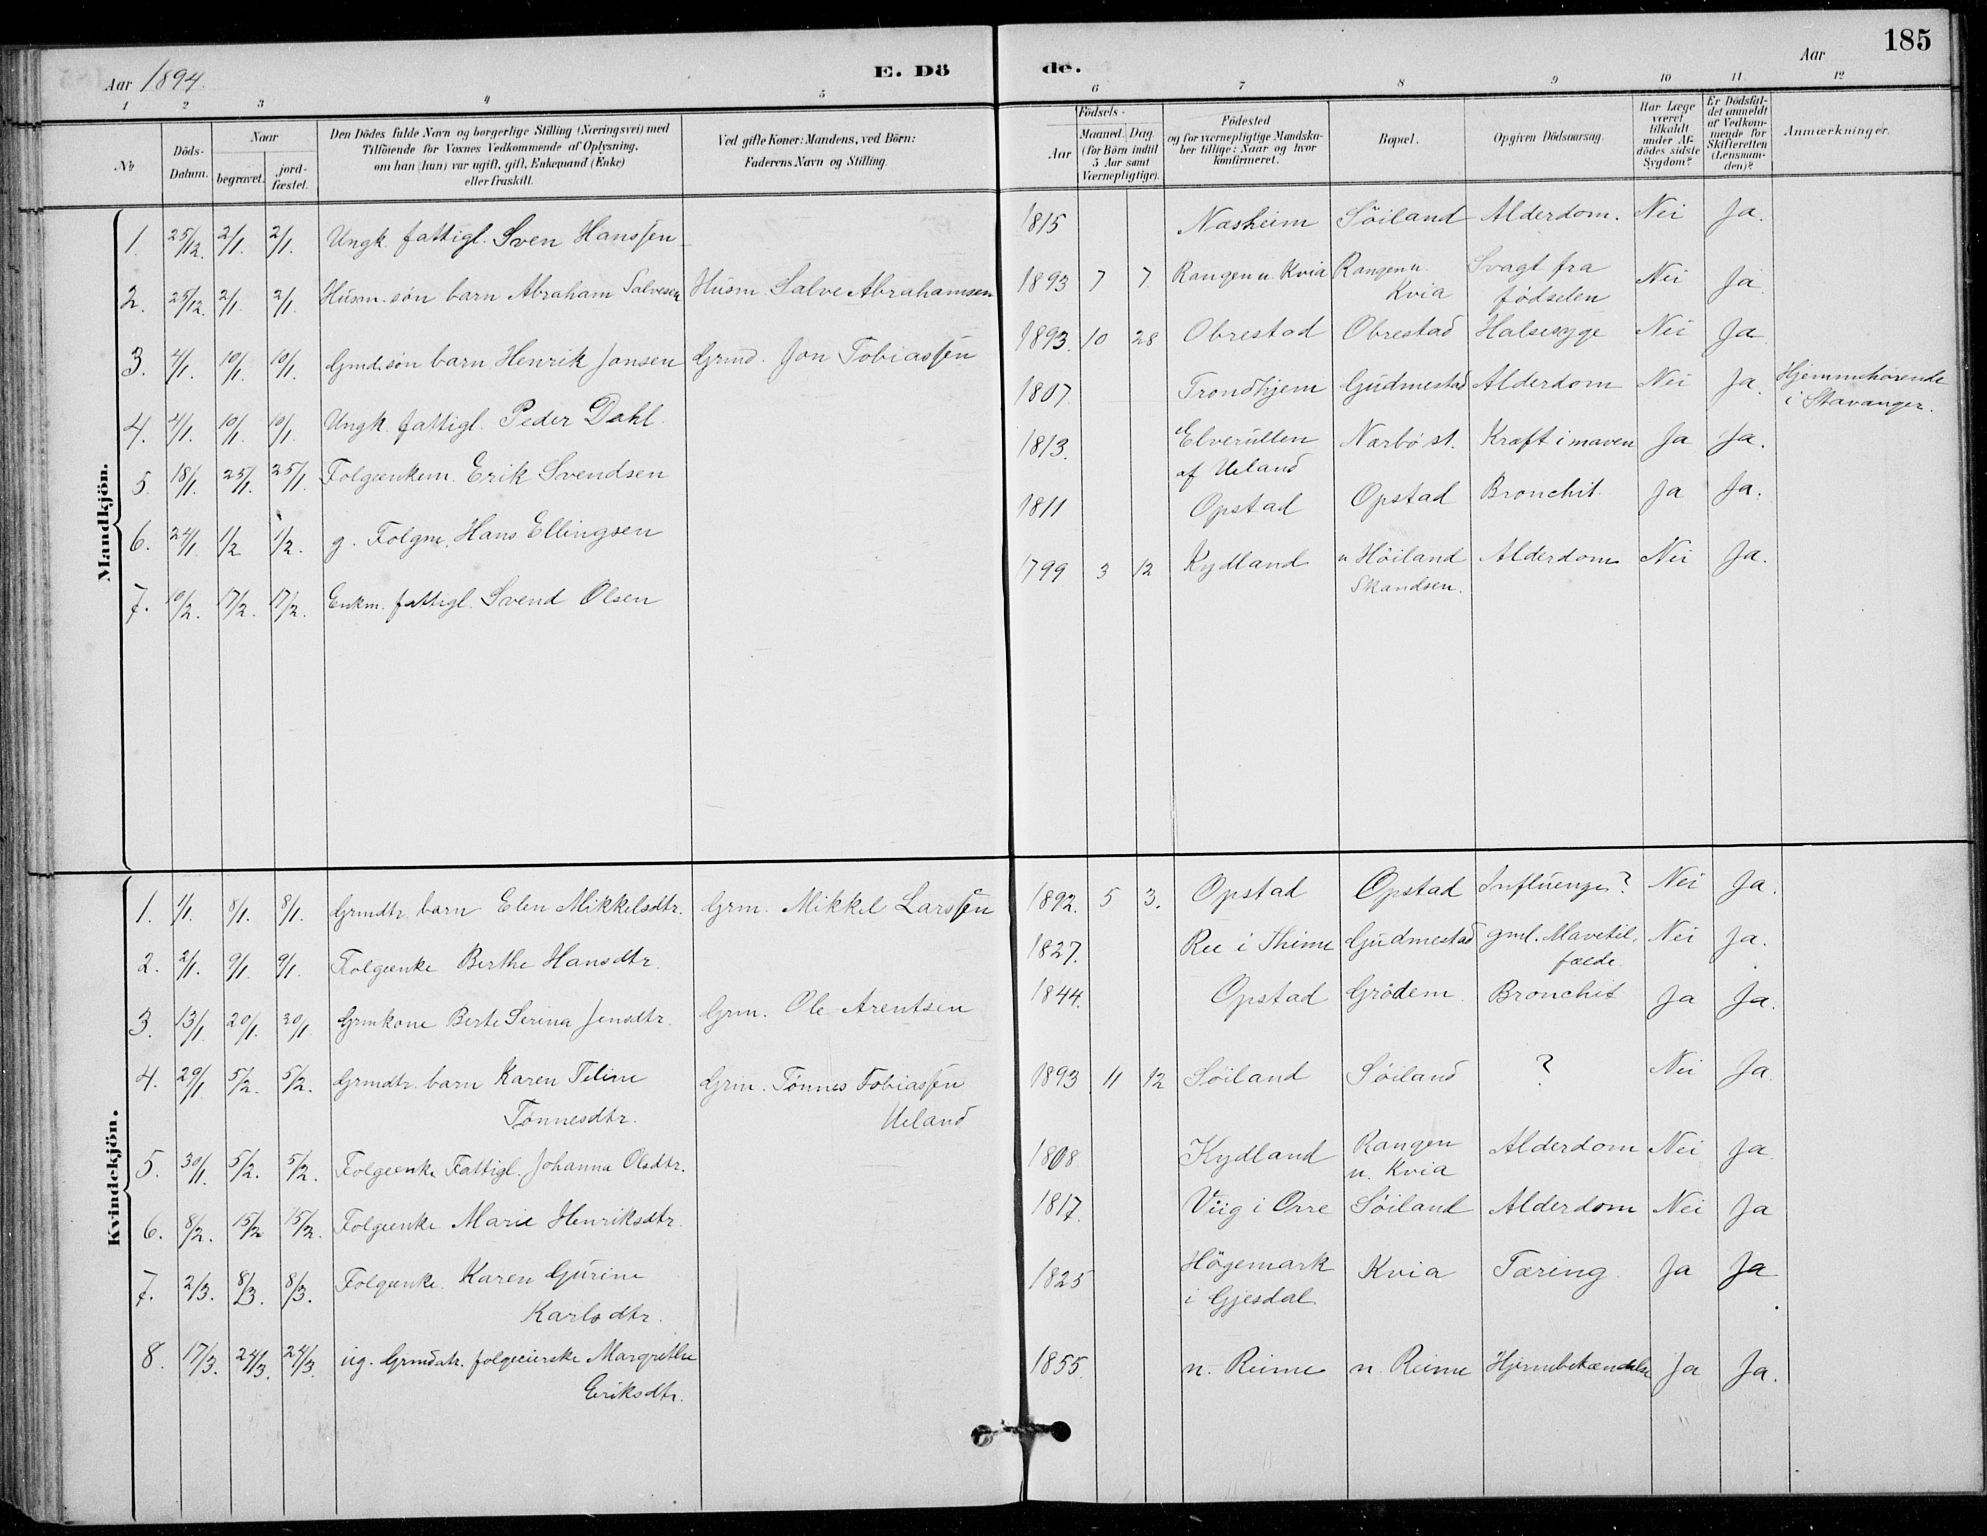 Aar 1894. E. Dö de. Aar 185
1 2 3 4 5 6 7 8 9 10 11 12
No Döds-Datum. Naar begravet. jord-fæstet. Den Dödes fulde Navn og borgerlige Stilling (Næringsvei) med Tilföiende for Voxnes Vedkommende af Oplysning, om han (hun) var ugift, gift, Enkemand (Enke) eller fraskilt. Ved gifte Koner: Mandens, ved Börn: Faderens Navn og Stilling. Födsels- Aar Maaned. Dag. (for Börn indtil 5 Aar samt Værnepligtige). Födested og for værnepligtige Mandskaber tillige: Naar og hvor konfirmeret. Bopæl. Opgiven Dödsaarsag. Har Læge været tilkaldt under Afdödes sidste Sygdom? Er Dödsfaldet anmeldt af Vedkommende for Skifteretten (Lensmanden)? Anmærkninger.
Mandkjön.
1. 25/12. 2/1. 2/1. Ungk. fattigl. Sven Hanssen 1815 Nasheim Söiland Alderdom. Nei Ja.
2. 25/12. 2/1. 2/1. Husm. sön barn Abraham Salvesen Husm. Salve Abrahamsen 1893 7 7. Rangen u. Kvia Rangen u. Kvia Svagt fra fødselen Nei Ja.
3. 4/1. 10/1. 10/1. Gmd. sön barn Henrik Jonsen Grmd. Jon Tobiassen 1893. 10 28 Obrestad Obrestad Halsesyge Nei Ja.
4. 4/1. 10/1. 10/1. Ungk. fattigl. Peder Dahl. 1807 Trondhjem Gudmestad Alderdom Nei Ja. Hjemmehørende i Stavanger.
5. 18/1. 25/1. 25/1. Folgeenkem. Erik Svendsen 1813. Elverullen af Ueland Nærbö st. Kræft i maven Ja Ja.
6. 24/1. 1/2. 1/2. g. Folgm. Hans Ellingsen 1811 Opstad Opstad Bronchit. Ja Ja.
7. 10/2. 17/2. 17/2. Enkm. fattigl. Svend Olsen 1799 3 12 Kydland u Höiland Skandsen. Alderdom Nei Ja.
Kvindekjön.
1. 1/1. 8/1. 8/1. Grmdtr. barn Elen Mikkelsdtr. Grm. Mikkel Larssen 1892. 5 3. Opstad Opstad Influenza? Nei Ja.
2. 2/1. 9/1. 9/1. Folgeenke Berthe Hansdtr. 1827. Ree i Thime Gudmestad gml. Mavetilfælde. Nei Ja.
3. 13/1. 20/1. 20/1. Grmkone Berte Serina Jensdtr. Grm. Ole Arentsen 1844. Opstad Grödem. Bronchit Ja Ja.
4. 29/1. 5/2. 5/2. Grmdtr. barn Karen Teline Tønnesdtr. Grm. Tønnes Tobiassen Ueland 1893 11 12 Söiland Söiland ? Nei Ja.
5. 30/1. 5/2. 5/2. Folgeenke Fattigl. Johanna Olsdtr. 1808 Kydland Rangen u. Kvia Alderdom Nei Ja.
6. 8/2. 15/2 15/2. Folgeenke Marie Henriksdtr. 1817. Viig i Orre Söiland Alderdom Nei Ja
7. 2/3. 8/3. 8/3. Folgeenke. Karen Gurine Karlsdtr. 1825 Högemark i Gjesdal. Kvia Tæring Ja Ja
8. 17/3. 24/3. 24/3. ug. Grmdatr. Margrethe Eriksdtr. 1855. n. Reime n. Reime Hjernebetændelse Ja Ja.